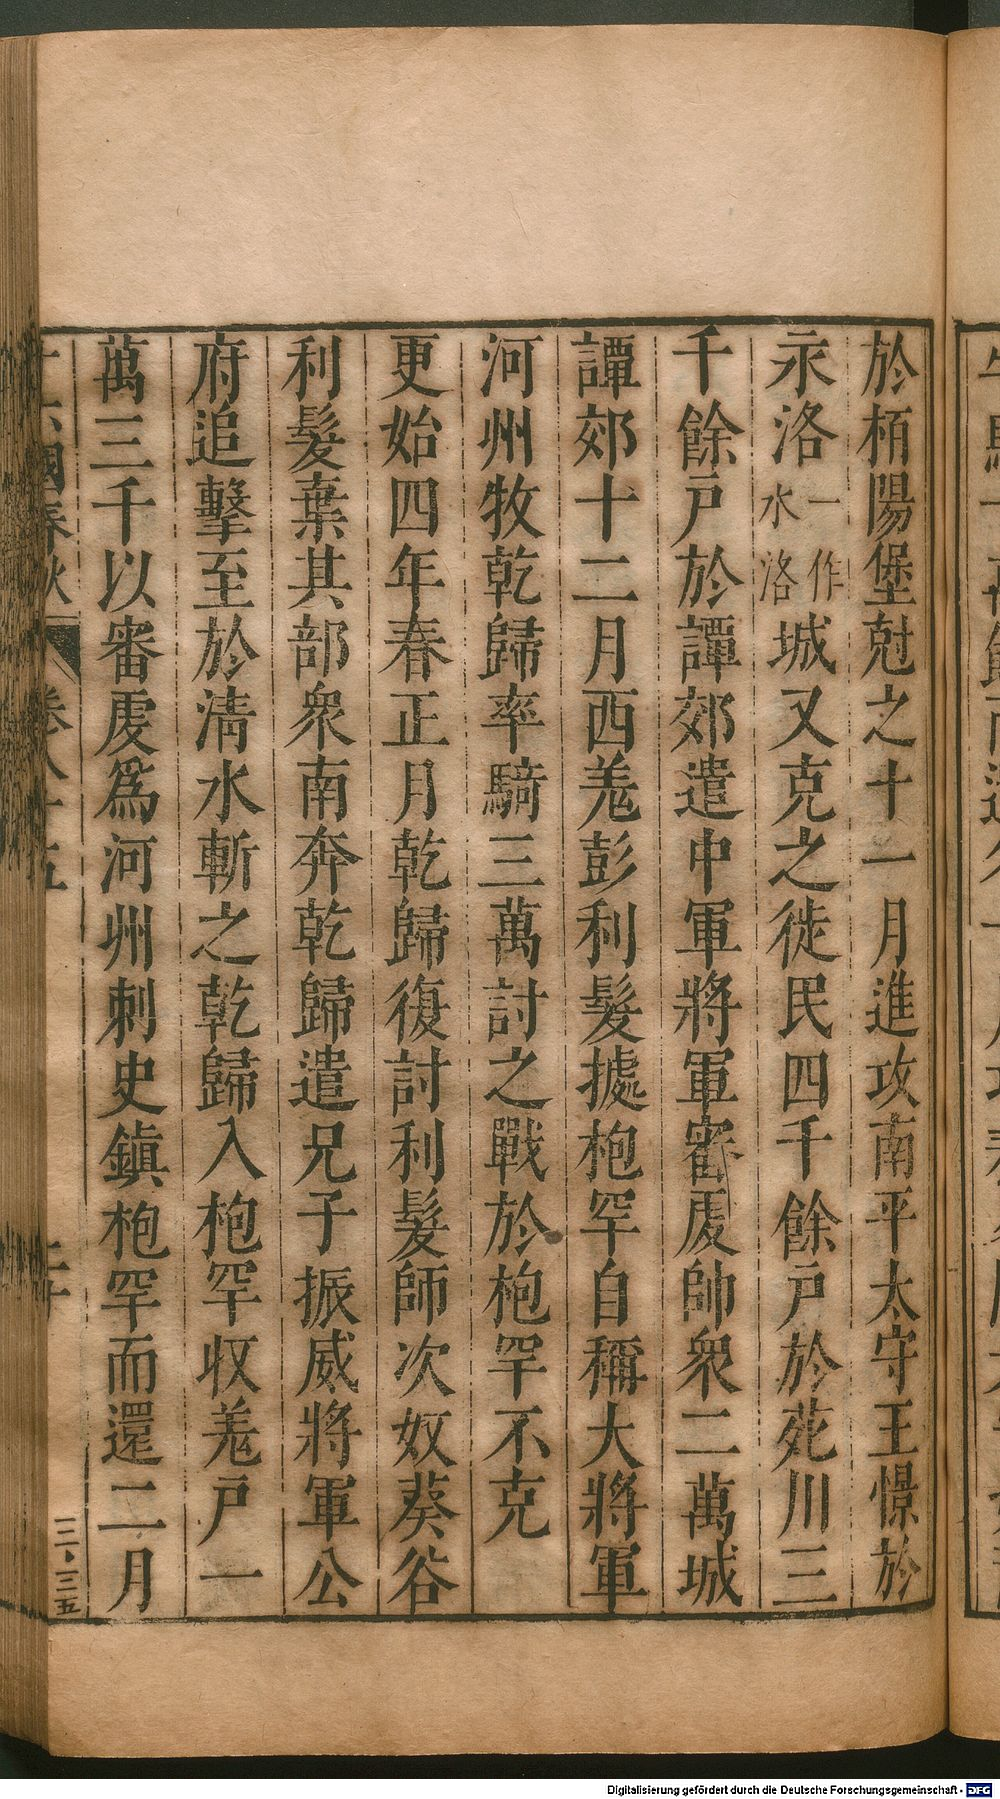 於栢陽堡尅之十一月進攻南平太守王憬於
永洛一作水洛城又克之徙民四千餘户於苑川三
千餘户於譚郊遣中軍將軍審虔帥衆二萬城
譚郊十二月西羗彭利髮據枹罕自稱大將軍
河州牧乾歸率騎三萬討之戰於枹罕不克
更始四年春正月乾歸復討利髮師次奴葵谷
利髮棄其部衆南奔乾歸遣兄子振威將軍公
府追擊至於清水斬之乾歸入枹罕收羗户一
萬三千以審虔爲河州刺史鎮枹罕而還二月
十六國春秋 卷八十五 二十 三、三五
Digitalisierung gefördert durch die Deutsche Forschungsgemeinschaft - DFG